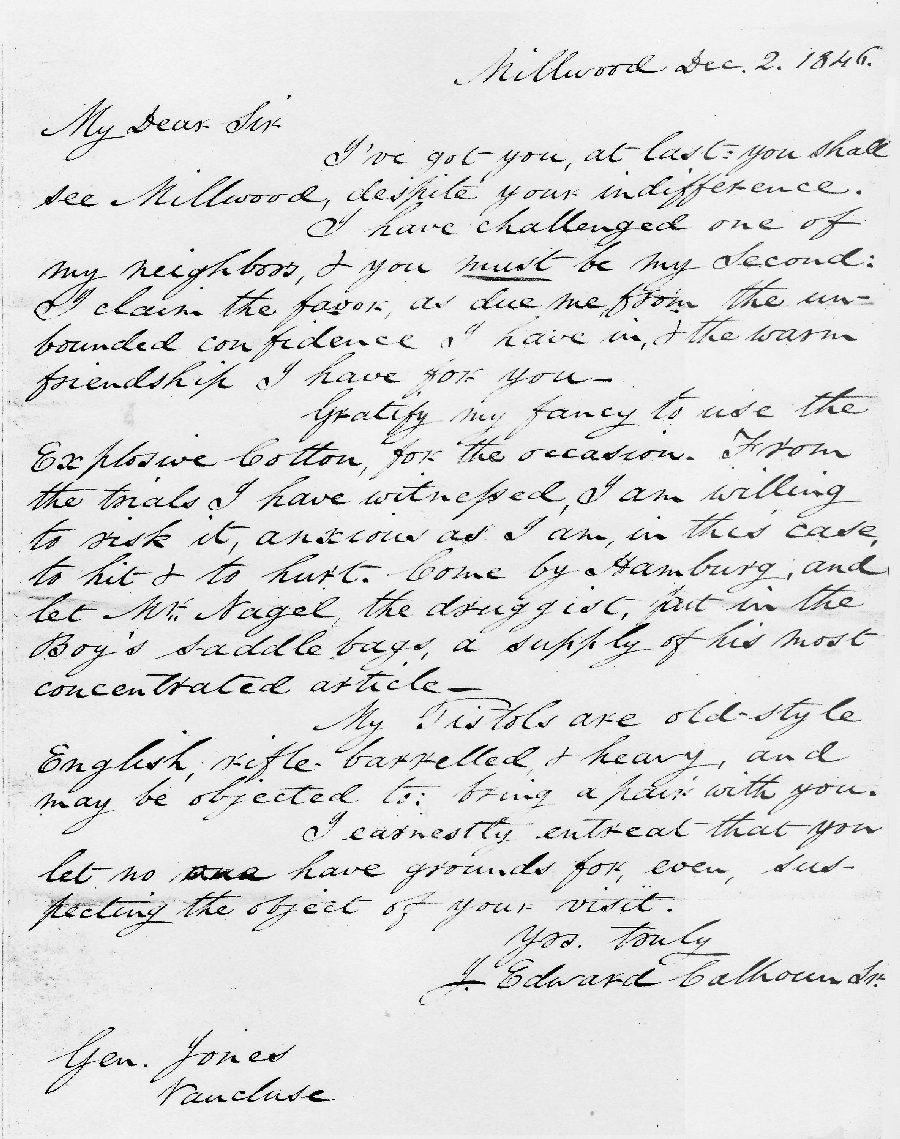 Millwood Dec. 2. 1846.
My Dear Sir
I've got you, at last: you shall
see Millwood, despite your indifference.
I have challenged one of
my neighbors, & you must be my Second:
I claim the favor, as due me from the un-
bounded confidence I have in, & the warm
friendship I have for you—
Gratify my fancy to use the
Explosive Cotton, for the occasion. From
the trials I have witnessed, I am willing
to risk it, anxious as I am, in this case,
to hit & to hurt. Come by Hamburg, and
let Mr. Nagel, the druggist, put in the
Boy's saddle bags, a supply of his most
concentrated article—
My Pistols are old-style
English, rifle-barrelled, & heavy, and
may be objected to: bring a pair with you.
I earnestly entreat that you
let no have grounds for, even, sus-
pecting the object of your visit.
Yrs. truly
J. Edward Calhoun Sr.
Gen. Jones
Vancluse